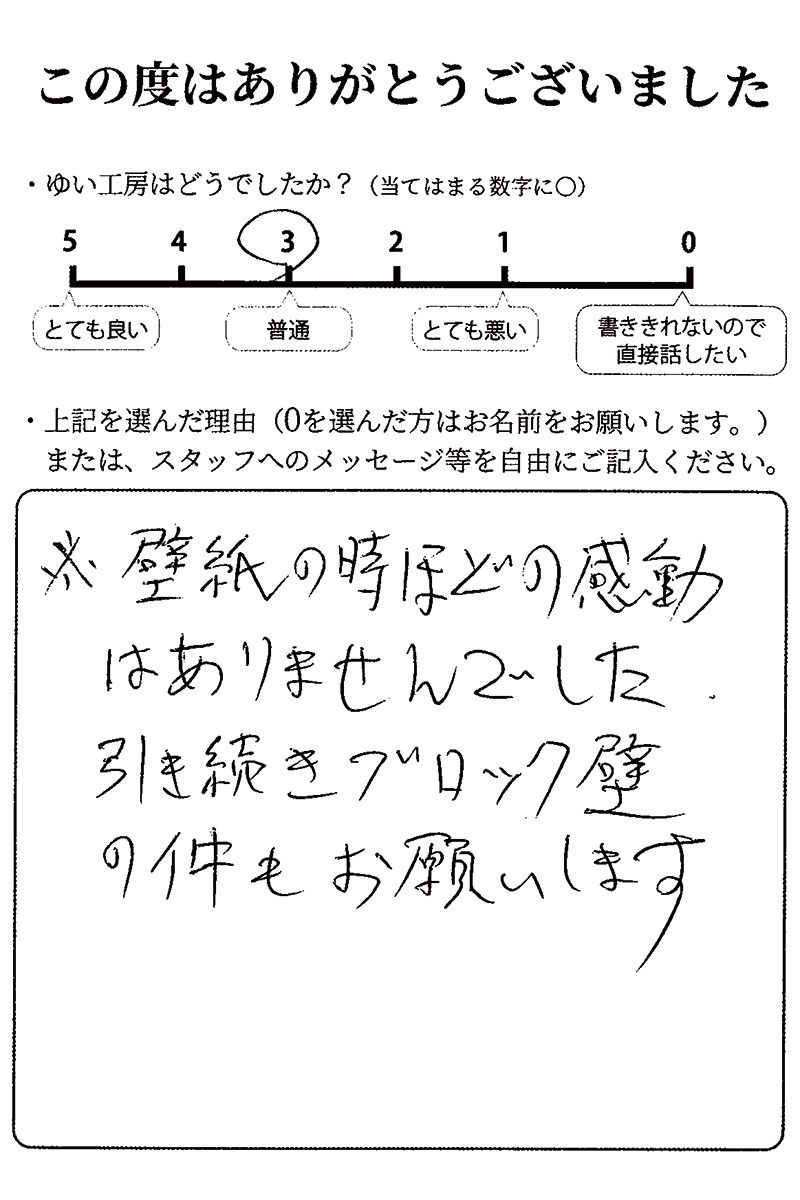 この度はありがとうございました
・ゆい工房はどうでしたか？（当てはまる数字に○）
5 4 3 2 1 0
とても良い 普通 とても悪い 書ききれないので
直接話したい
・上記を選んだ理由（0を選んだ方はお名前をお願いします。）
または、スタッフへのメッセージ等を自由にご記入ください。
※ 壁紙の時ほどの感動
はありませんでした.
引き続きブロック壁
の件もお願いします